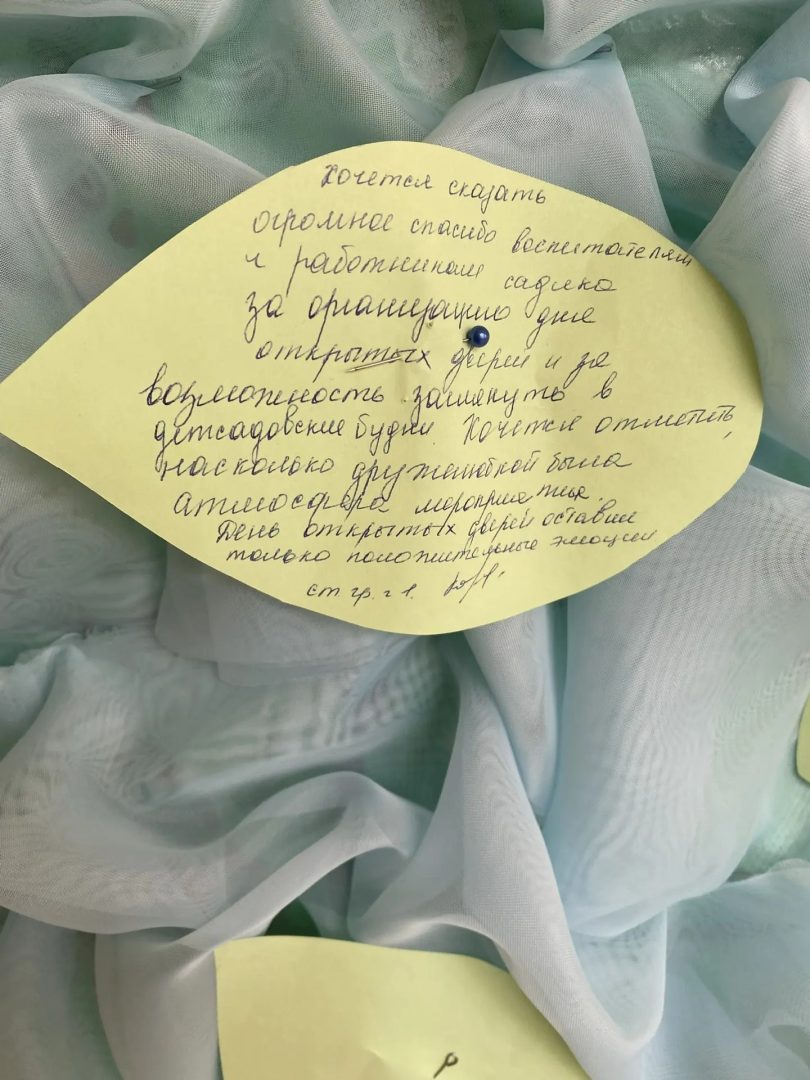 Хочется сказать
огромное спасибо воспитателям
и работникам садика
за организацию дня
открытых дверей и за
возможность заглянуть в
детсадовские будни. Хочется отметить,
насколько дружелюбной была
атмосфера мероприятия.
День открытых дверей оставил
только положительные эмоции.
ст гр. г 1.